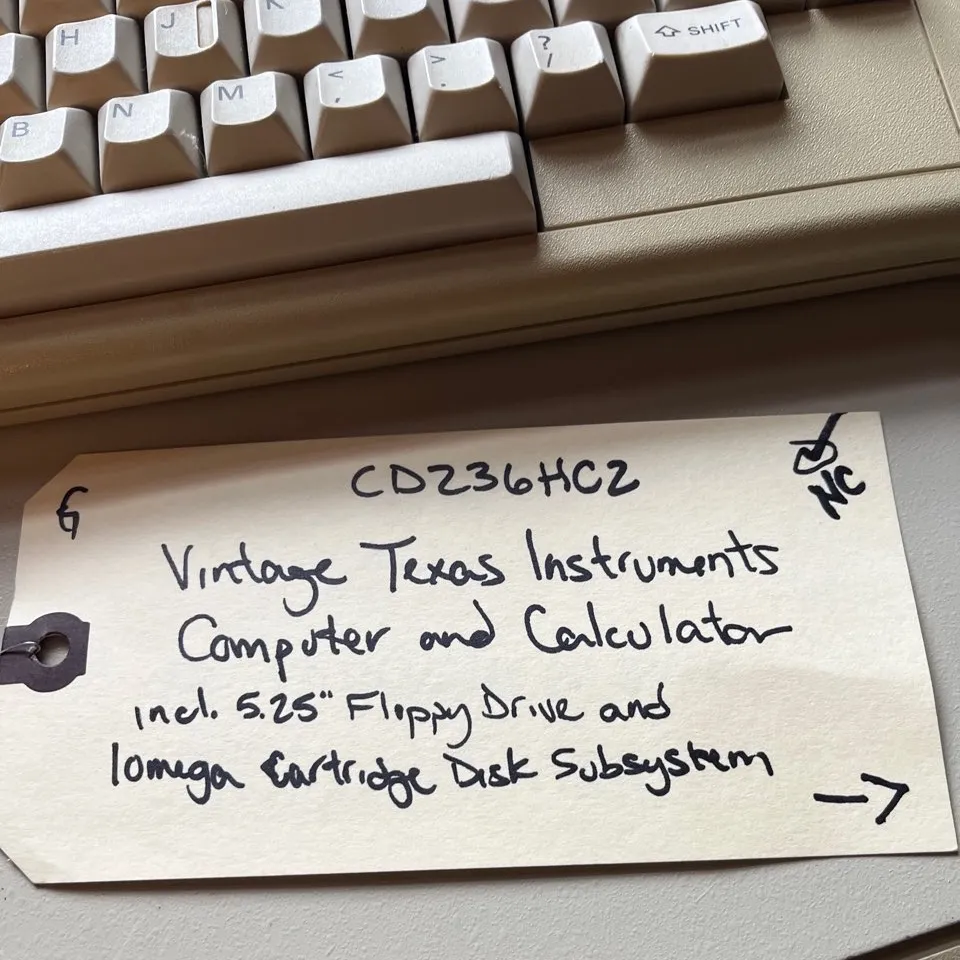 H J K
B N M < , > . ? / SHIFT
CD236HC2
G
NC
Vintage Texas Instruments
Computer and Calculator
incl. 5.25" Floppy Drive and
Iomega Cartridge Disk Subsystem
→